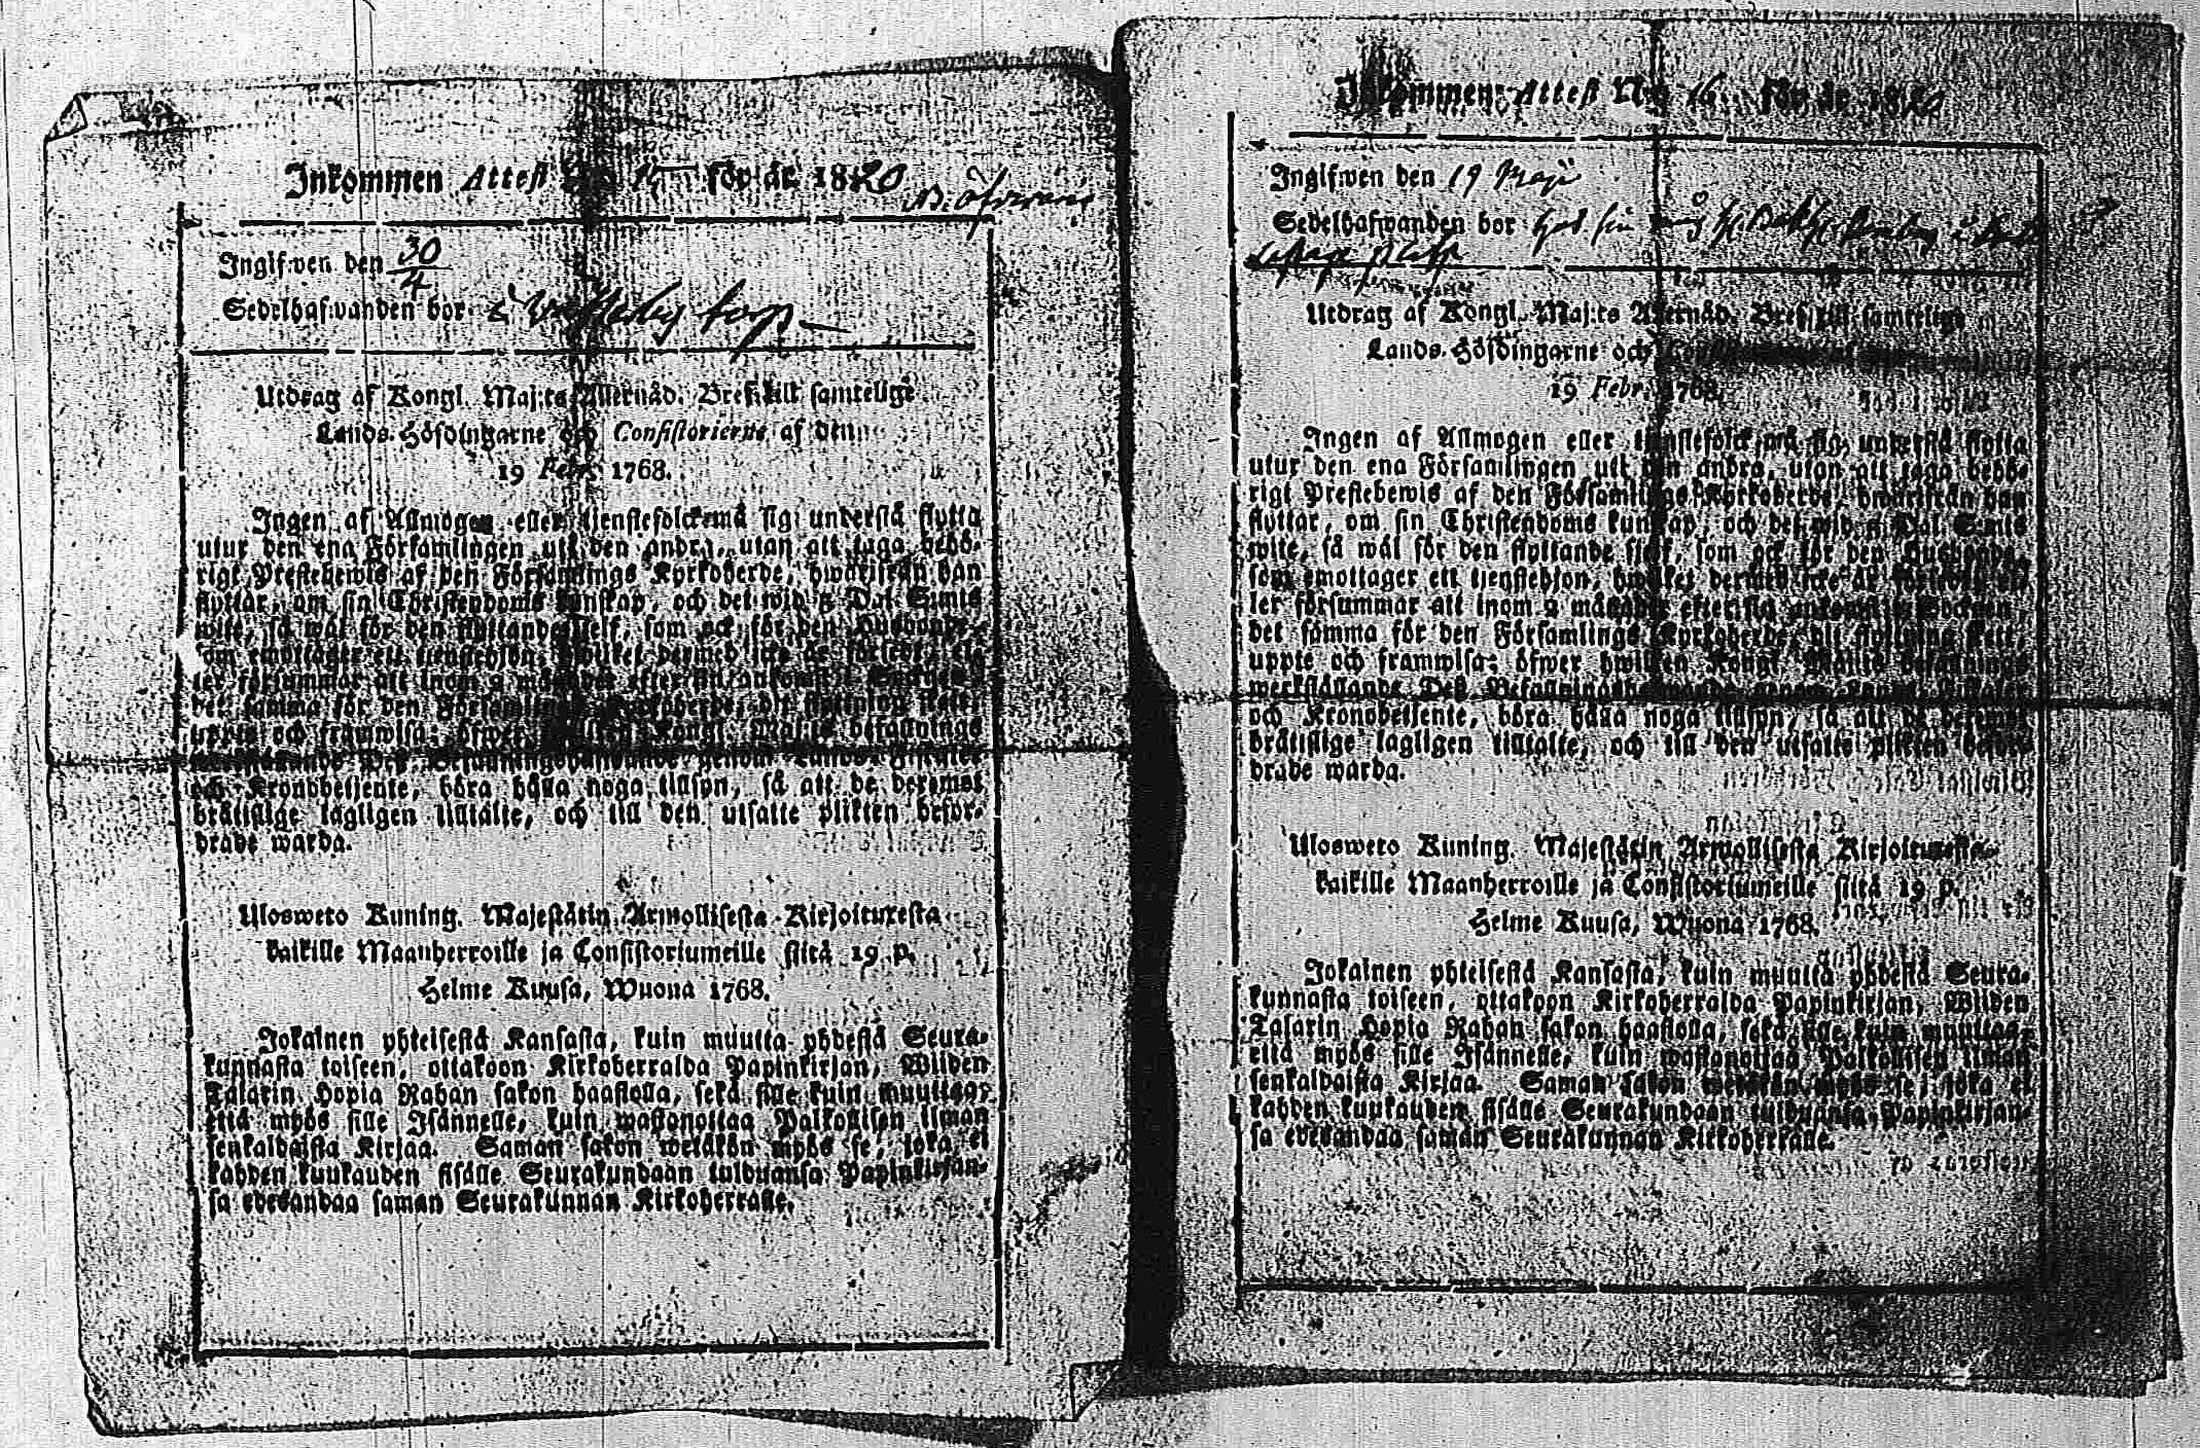 Inkommen Attest N:o 15 för år 1820
Ingifwen den 30/4
Sedelhafwanden bor å torp
Utdrag af Kongl. Maj:ts Allernåd. Bref till samtelige
Lands-Höfdingarne och Consistorierne af den
19 Febr. 1768.
Ingen af Allmogen eller tjenstefolck må sig understå flytta
utur den ena Församlingen uti den andra, utan att taga behö-
rigt Prestebewis af den Församlings Kyrkoherde, hwarifrån han
flyttar, om sin Christendoms kunskap, och det wid 5 Dal. S:mts
wite, så wäl för den flyttande sielf, som ock för den Husbonde,
som emottager ett tjenstehjon, hwilket dermed icke är försedt, el-
ler försummar att inom 2 månader efter sin ankomst i Socknen
det samma för den Församlings Kyrkoherde, dit flyttning skett,
uppte och framwisa; öfwer hwilken Kongl. Maj:ts befallnings
werkställande Des Befallningshafwande genom Lands-Fiskaler
och Kronobetjente, böra hålla noga tillsyn, så att de deremot
bråttslige lagligen tilltalte, och till den utsatte plikten befor-
drade warda.
Ulosweto Kuning. Majestätin Armollisesta Kirjoituxesta
kaikille Maanherroille ja Consistoriumeille siitä 19 p.
Helme Kuusa, Wuona 1768.
Jokainen yhteisestä Kansasta, kuin muutta yhdestä Seura-
kunnasta toiseen, ottakoon Kirkoherralda Papinkirjan, Wiiden
Talarin Hopia Rahan sakon haastolla, sekä sille kuin muuttaa,
että myös sille Isännelle, kuin wastanottaa Palkollisen ilman
senkaldaista Kirjaa. Saman sakon wetäkön myös se, joka ei
kahden kuukauden sisälle Seurakundaan tulduansa Papinkirjan-
sa edesandaa saman Seurakunnan Kirkoherralle.
Inkommen Attest N:o 16 för år 1820
Ingifwen den 19 Maji
Sedelhafwanden bor hos sin
Utdrag af Kongl. Maj:ts Allernåd. Bref till samtelige
Lands-Höfdingarne och
19 Febr. 1768.
Ingen af Allmogen eller tjenstefolck må sig understå flytta
utur den ena Församlingen uti den andra, utan att taga behö-
rigt Prestebewis af den Församlings Kyrkoherde, hwarifrån han
flyttar, om sin Christendoms kunskap, och det wid 5 Dal. S:mts
wite, så wäl för den flyttande sielf, som ock för den Husbonde,
som emottager ett tjenstehjon, hwilket dermed icke är försedt, el-
ler försummar att inom 2 månader efter sin ankomst i Socknen
det samma för den Församlings Kyrkoherde, dit flyttning skett,
uppte och framwisa; öfwer hwilken Kongl. Maj:ts befallnings
werkställande Des Befallningshafwande genom Lands-Fiskaler
och Kronobetjente, böra hålla noga tillsyn, så att de deremot
bråttslige lagligen tilltalte, och till den utsatte plikten befor-
drade warda.
Ulosweto Kuning. Majestätin Armollisesta Kirjoituxesta
kaikille Maanherroille ja Consistoriumeille siitä 19 p.
Helme Kuusa, Wuona 1768.
Jokainen yhteisestä Kansasta, kuin muutta yhdestä Seura-
kunnasta toiseen, ottakoon Kirkoherralda Papinkirjan, Wiiden
Talarin Hopia Rahan sakon haastolla, sekä sille kuin muuttaa,
että myös sille Isännelle, kuin wastanottaa Palkollisen ilman
senkaldaista Kirjaa. Saman sakon wetäkön myös se, joka ei
kahden kuukauden sisälle Seurakundaan tulduansa Papinkirjan-
sa edesandaa saman Seurakunnan Kirkoherralle.